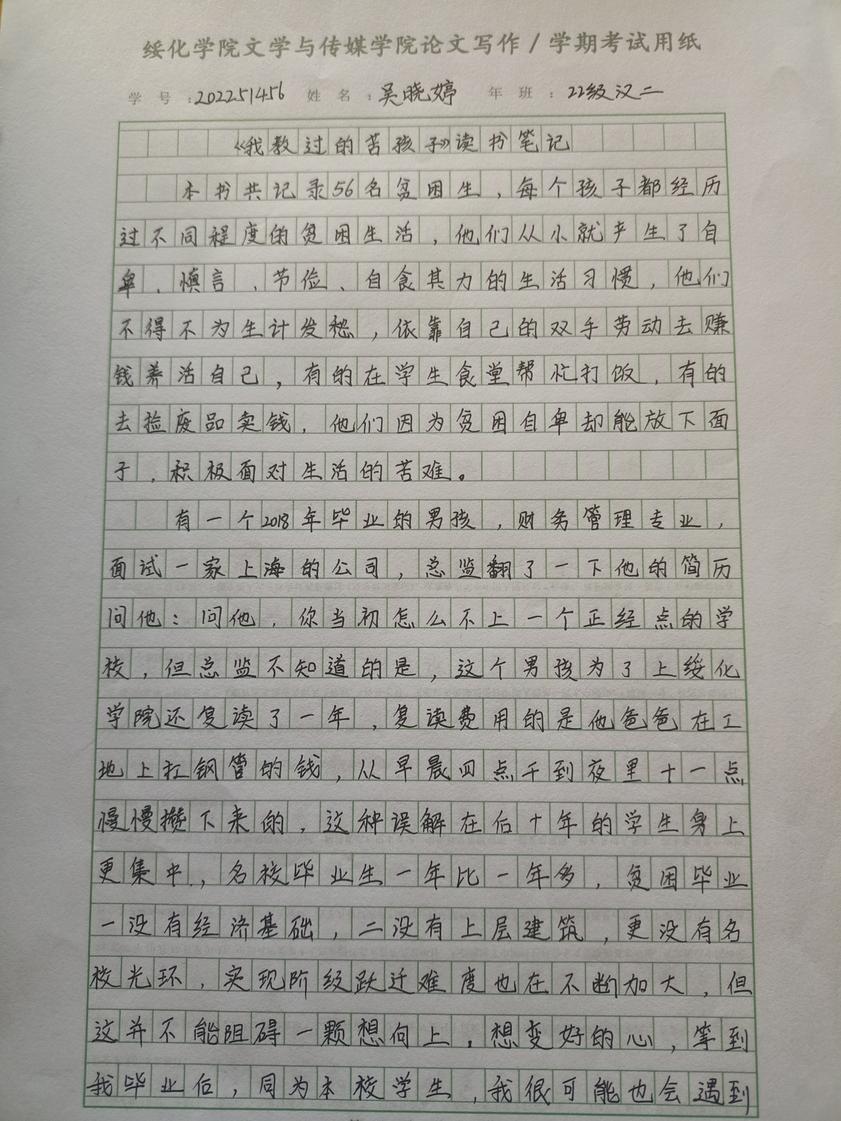 绥化学院文学与传媒学院论文写作/学期考试用纸
学号:202251456 姓名:吴晓婷 年班:22级汉二
《我教过的苦孩子》读书笔记
本书共记录56名贫困生,每个孩子都经历
过不同程度的贫困生活,他们从小就产生了自
卑、慎言、节俭、自食其力的生活习惯,他们
不得不为生计发愁,依靠自己的双手劳动去赚
钱养活自己,有的在学生食堂帮忙打饭,有的
去捡废品卖钱,他们因为贫困自卑却能放下面
子,积极面对生活的苦难。
有一个2018年毕业的男孩,财务管理专业,
面试一家上海的公司,总监翻了一下他的简历
问他:问他,你当初怎么不上一个正经点的学
校,但总监不知道的是,这个男孩为了上绥化
学院还复读了一年,复读费用的是他爸爸在工
地上扛钢管的钱,从早晨四点干到夜里十一点
慢慢攒下来的,这种误解在后十年的学生身上
更集中,名校毕业生一年比一年多,贫困毕业
一没有经济基础,二没有上层建筑,更没有名
校光环,实现阶级跃迁难度也在不断加大,但
这并不能阻碍一颗想向上,想变好的心,等到
我毕业后,同为本校学生,我很可能也会遇到